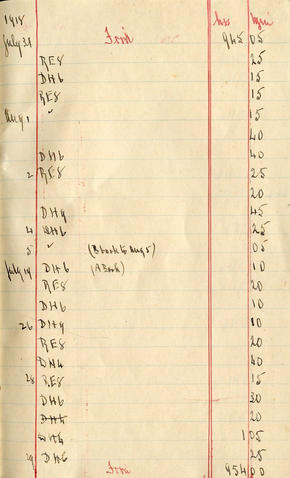 1918 hrs min
July 31 Forw 945 05
RE8 25
DH6 15
RE8 15
Aug 1 " 15
40
DH6 40
2 RE8 25
20
DH9 45
4 DH6 25
5 " (B book to Aug 5) 05
July 19 DH6 (A Book) 10
RE8 20
DH6 10
26 DH9 10
RE8 20
DH4 40
28 RE8 15
DH6 30
DH4 20
DH4 1 05
29 DH6 25
Forw 954 00